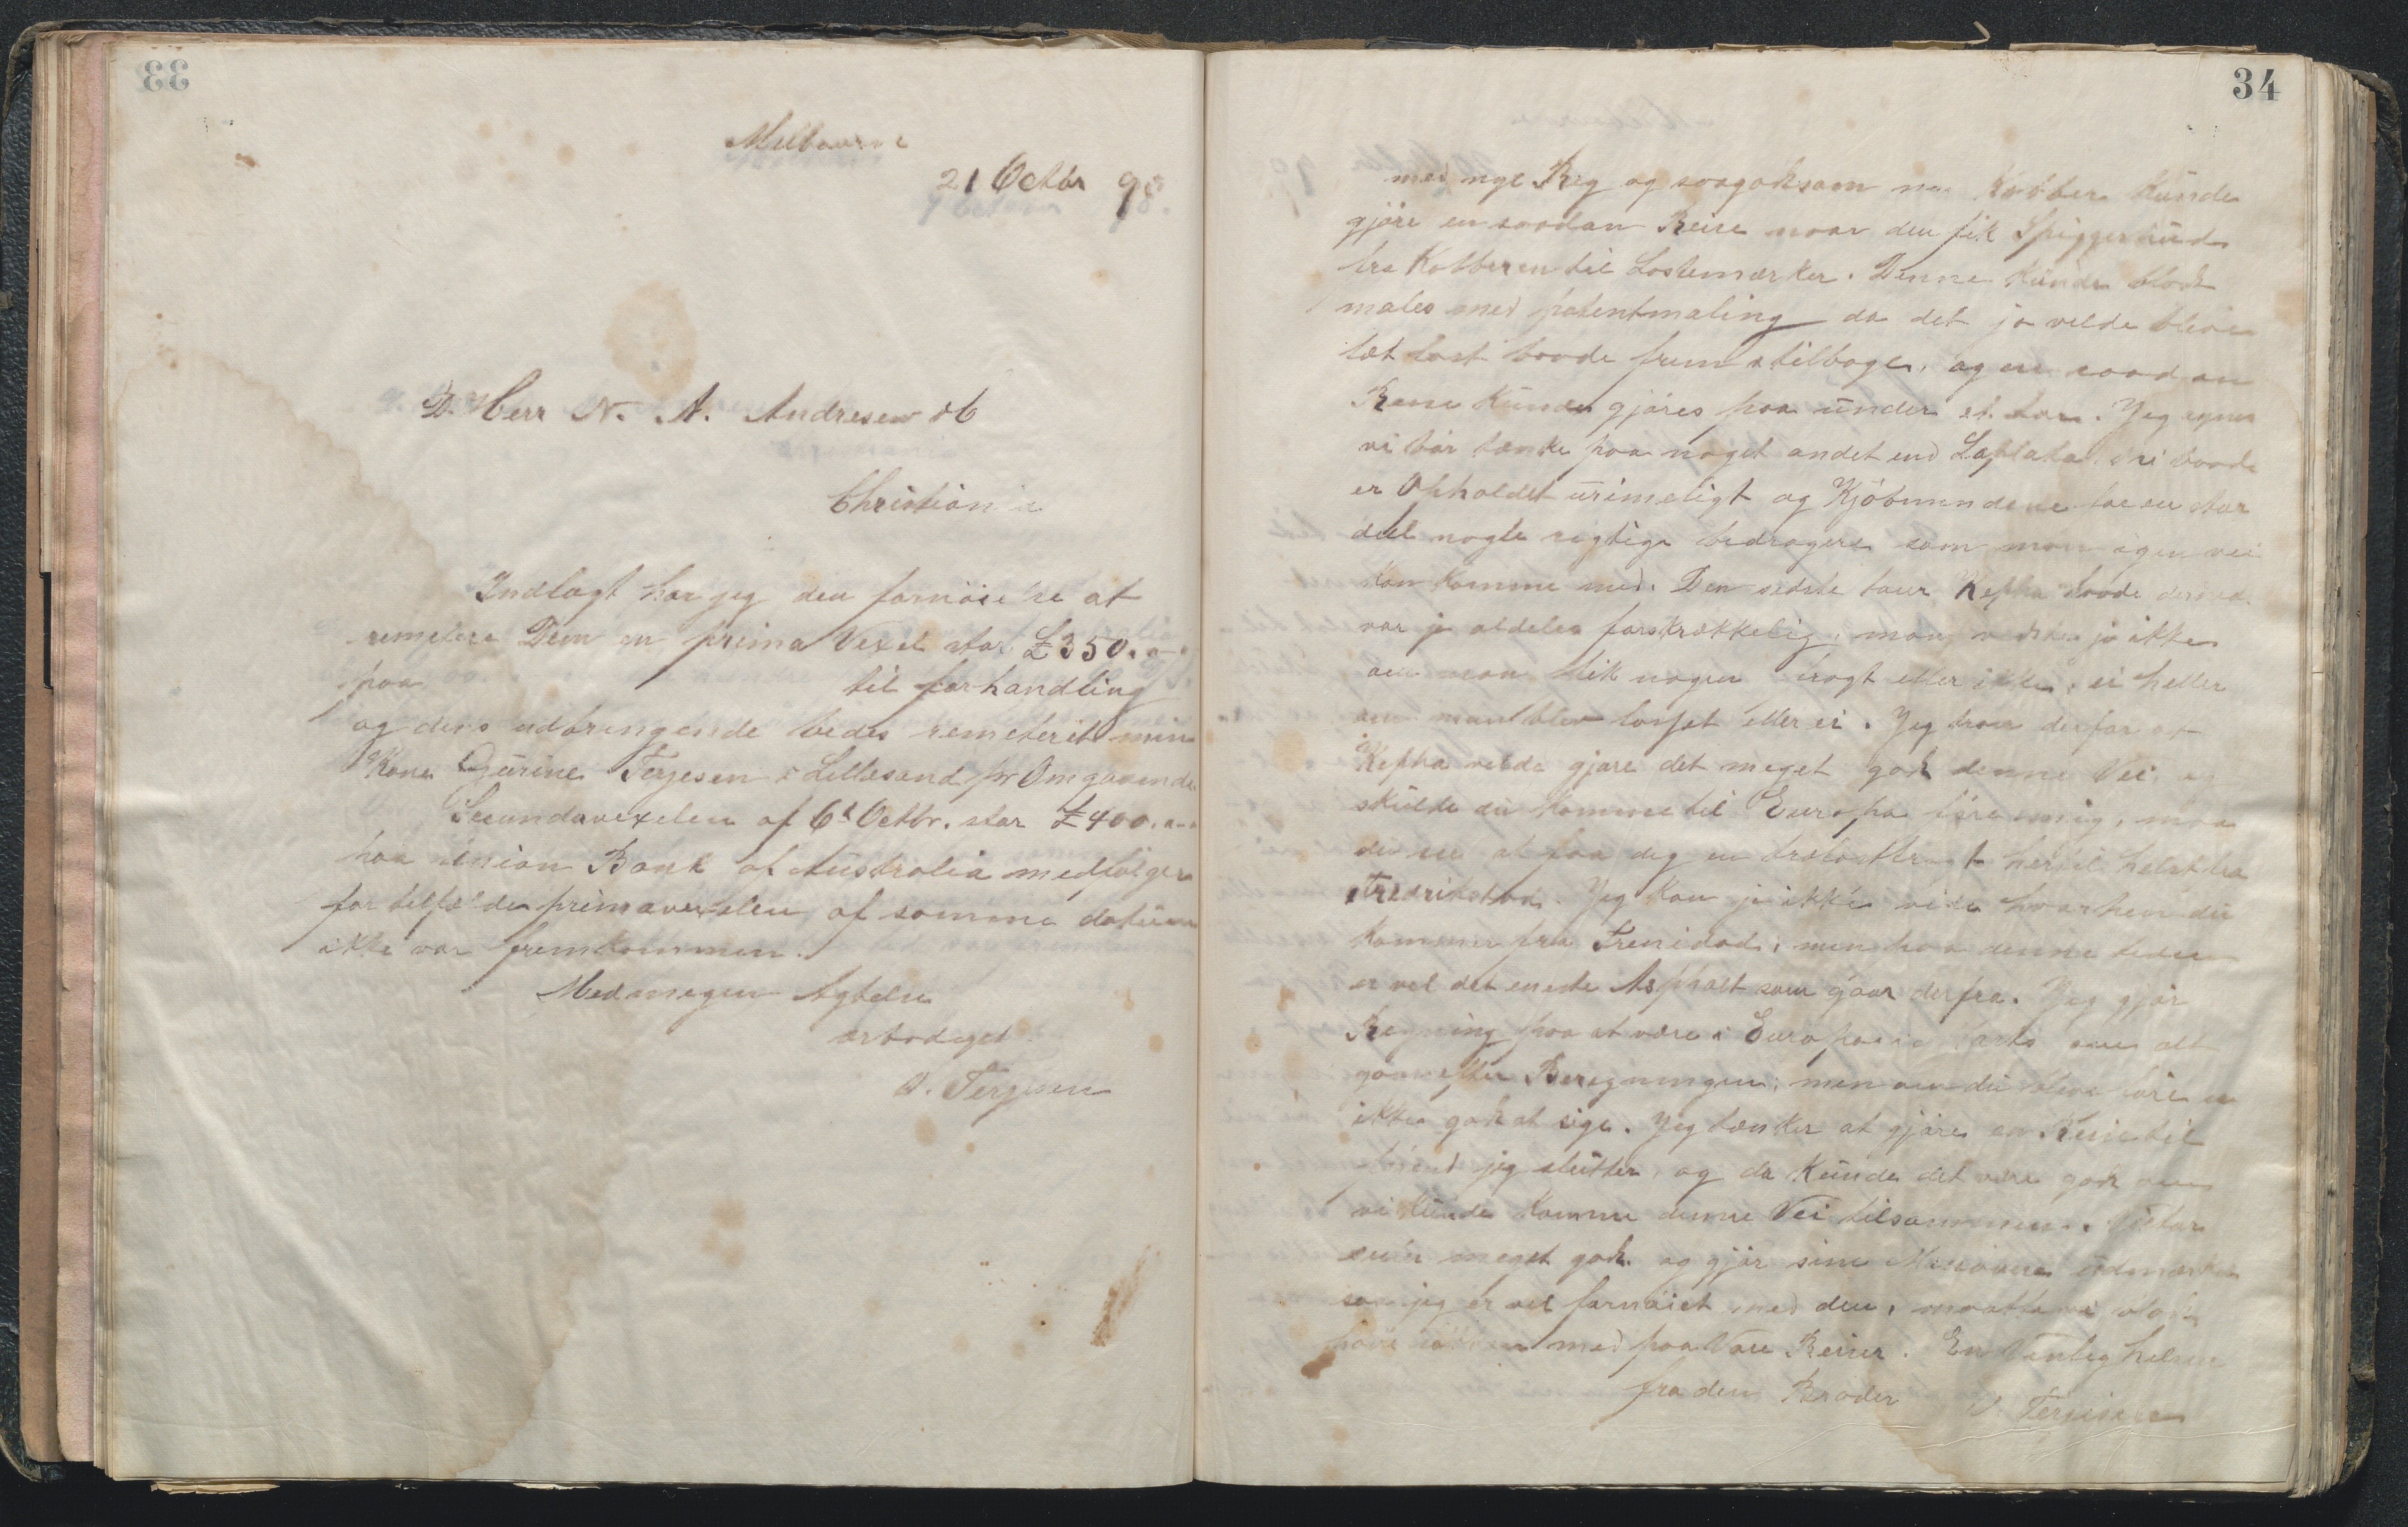 33
Melbourne
21 Octbr 98.
D. Herr N. A. Andresen &C
Christiania
Indlagt har jeg den fornöielse at
remetere Dem en prima Vexel stor £350.
paa til forhandling
og dens udbringende bedes remeterit min
Kone Gurine Terjesen i Lillesand pr Omgaaende
Secundavexelen af 6t Octbr. stor £400.
paa Union Bank of Australia medfölger
for tilfælde primavexelen af samme datum
ikke var fremkommen.
Med megen Agtelse
ærbödigst
O. Terjesen
34
med nye Rig og saagodtsom nye Kobber kunde
gjöre en saadan Reise naar den fik Spigger ud
fra Kobberen til Lastemærker. Denne kunde blodt
males med patentmaling da det jo vilde blive
læt last baade frem & tilbage, og en saadan
Reise kunde gjöres paa under et aar. Jeg synes
vi bör tænke paa noget andet end Laplata, thi baade
er Opholdet urimeligt og Kjöbmændene for en stor
del nogle rigtige bedragere som man ingen vei
kan komme med. Den sidste tour Kepha havde derved
var jo aldeles forskrækkelig, man vidste jo ikke
om man fik nogen fragt eller ikke, ei heller
om man blev losset eller ei. Jeg troer derfor at
Kepha vilde gjöre det meget godt denne Vei, og
skulde du komme til Europa för mig, maa
du se at faa dig en trælastfragt hertil helst fra
Fredrikstad. Jeg kan jo ikke vide hvorhen du
kommer fra Trenidad, men paa denne tiden
er vel det eneste Asphalt som gaar derfra. Jeg gjör
Regning paa at være i Europa i Marts om alt
gaar efter Beregningen, men om du bliver före er
ikke godt at sige. Jeg tænker at gjöre en Reise til
förend jeg slutter, og da kunde det være godt om
vi kunde komme denne Vei tilsammen. Victor
seiler meget godt og gjör sine Manövere udmærket
saa jeg er vel fornöiet med den, maatte vi blodt
have lykken med paa vore Reiser. En Venlig hilsen
fra din Broder O. Terjesen